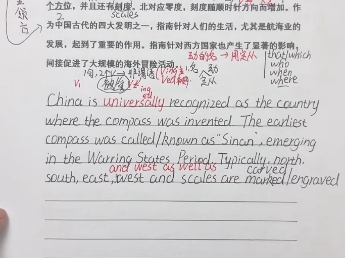 个方位,并且还有刻度,北对应零度,刻度随顺时针方向而增加。作
scales
为中国古代的四大发明之一,指南针对人们的生活,尤其是航海业的
发展,起到了重要的作用。指南针对西方国家也产生了显著的影响,
间接促进了大规模的海外冒险活动。
that/which
who
when
where
China is universally recognized as the country
where the compass was invented. The earliest
compass was called/known as "Sinan", emerging
in the Warring States Period. Typically, north.
and west as well as carved
south, east, west and scales are marked/engraved